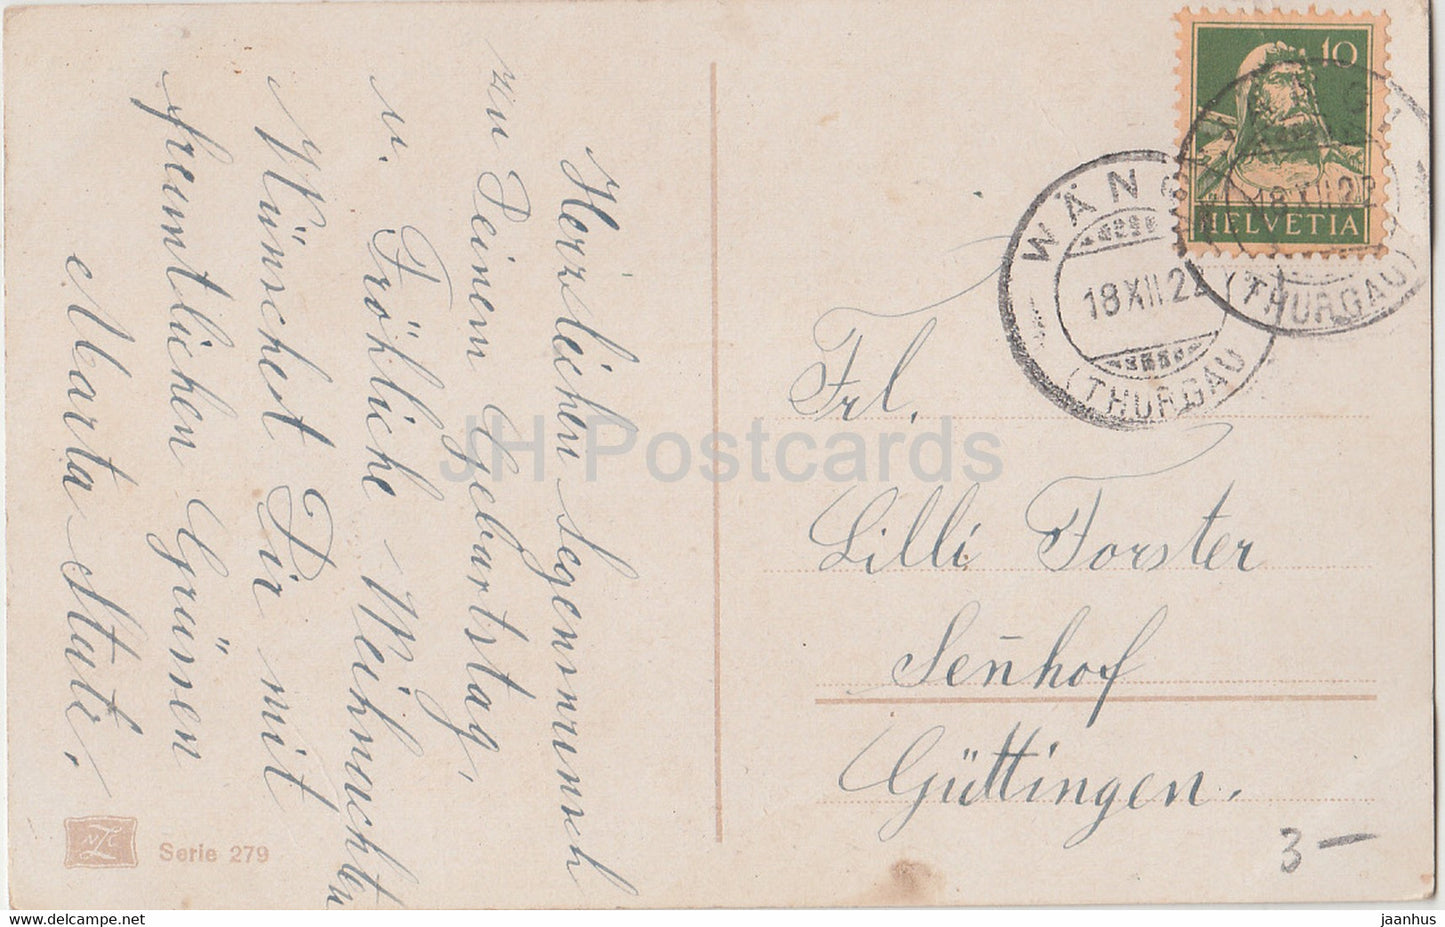 Herzlichen Segenwunsch
zu Deinem Geburtstag,
u. Fröhliche Weihnachten
Wünschet Dir mit
freuntlichen Grüssen
Marta Stutz.
Frl.
Lilli Forster
Sen̄hof
Güttingen.
10
HELVETIA
WÄNGI
18 XII 22
(THURGAU)
WÄNGI
18 XII 22
(THURGAU)
JH Postcards
Serie 279
3 —
delcampe.net
jaanhus